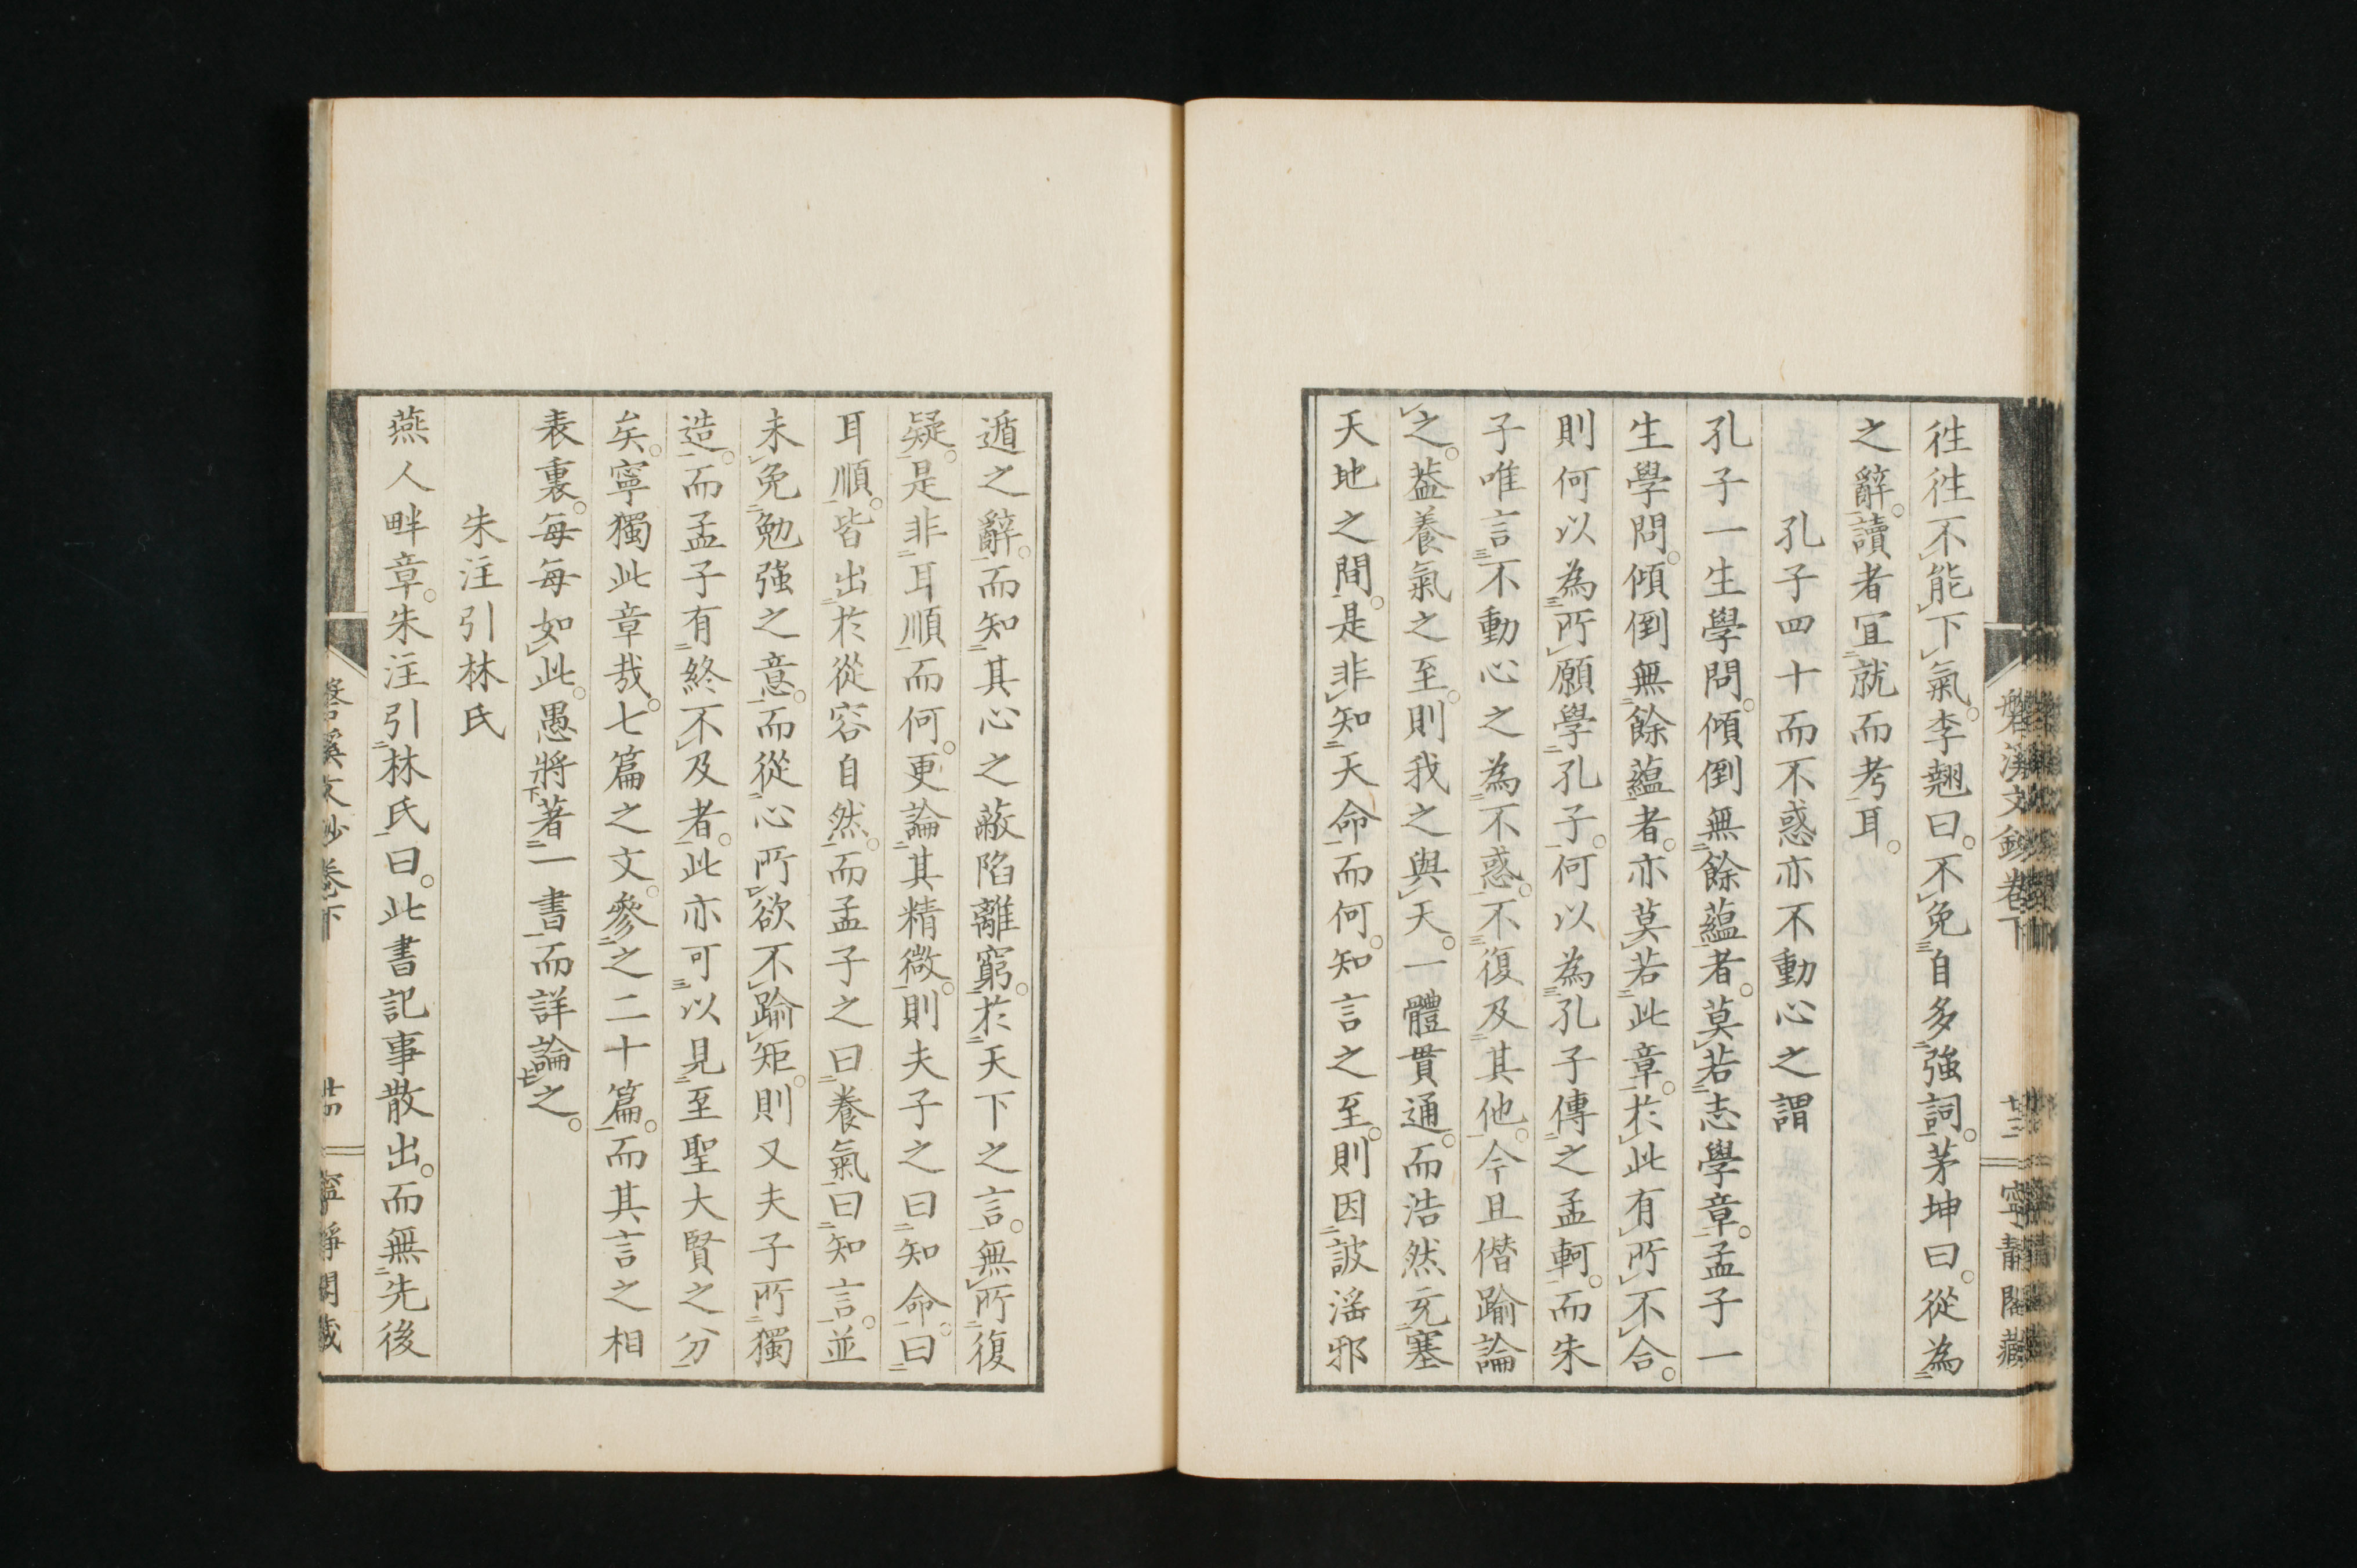 徃徃不能下氣。李翹曰。不免自多強詞。茅坤曰。從為
之辭。讀者宜就而考耳。
孔子四十而不惑亦不動心之謂
孔子一生學問。傾倒無餘蘊者。莫若志學章。孟子一
生學問。傾倒無餘蘊者。亦莫若此章。於此有所不合。
則何以為所願學孔子。何以為孔子傳之孟軻。而朱
子唯言不動心之為不惑。不復及其他。今且僭踰論
之。葢養氣之至。則我之與天。一體貫通。而浩然充塞
天地之間。是非知天命而何。知言之至。則因詖滛邪
遁之辭。而知其心之蔽陷離窮。於天下之言。無所復
疑。是非耳順而何。更論其精微。則夫子之曰知命。曰
耳順。皆出於從容自然。而孟子之曰養氣曰知言。並
未免勉強之意。而從心所欲不踰矩。則又夫子所獨
造。而孟子有終不及者。此亦可以見至聖大賢之分
矣。寧獨此章哉。七篇之文。參之二十篇。而其言之相
表裏。每每如此。愚將著一書而詳論之。
朱注引林氏
燕人畔章。朱注引林氏曰。此書記事散出。而無先後
磐溪文鈔卷下
廿三
寧靜閣藏
廿四
寧靜閣藏